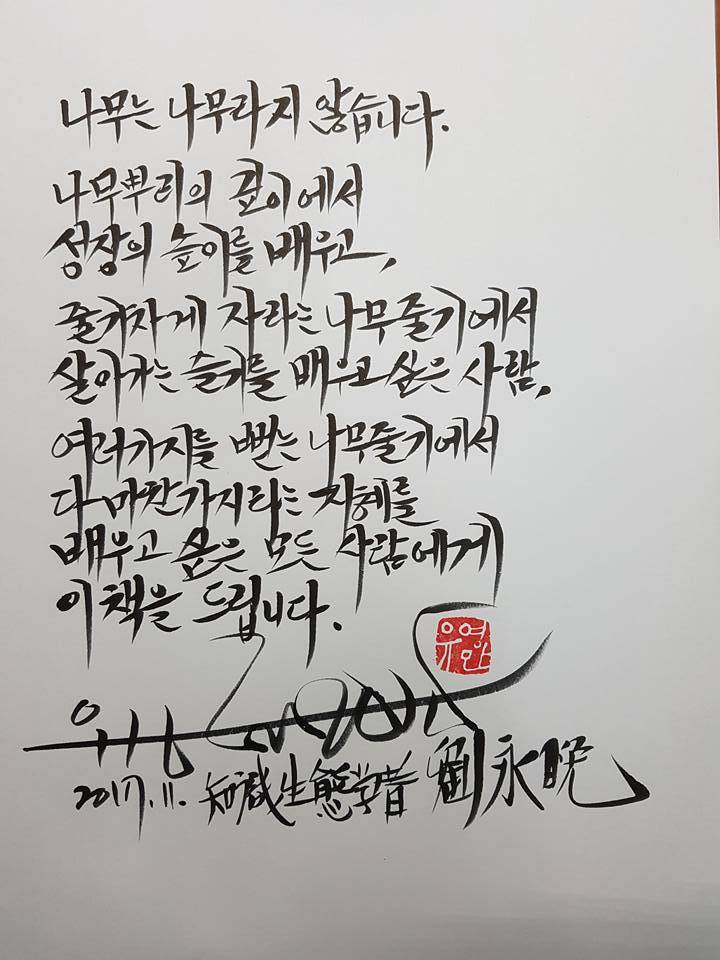 나무는 나무라지 않습니다.
나무뿌리의 깊이에서
성장의 높이를 배우고,
줄기차게 자라는 나무줄기에서
살아가는 슬기를 배우고 싶은 사람,
여러가지를 뻗는 나무줄기에서
다 마찬가지라는 지혜를
배우고 싶은 모든 사람에게
이 책을 드립니다.
유영만
2017. 11. 知識生態學者 劉永晩